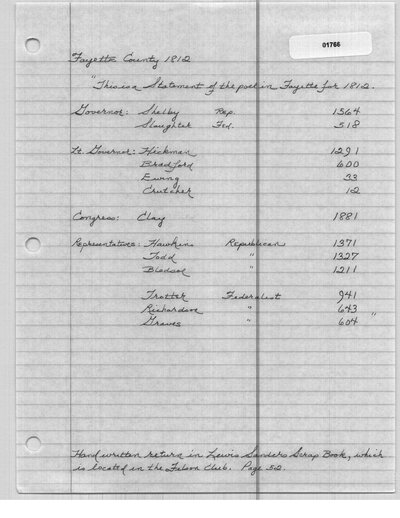 01766
Fayette County 1812
"This is a Statement of the poel in Fayette for 1812.
Governor: Shelby Rep. 1564
Slaughter Fed. 518
Lt. Governor: Hickman 1291
Bradford 600
Ewing 33
Crutcher 12
Congress: Clay 1881
Representatives: Hawkins Republican 1371
Todd " 1327
Bledsoe " 1211
Trotter Federalist 941
Richardson " 643
Graves " 604 "
Hand written return in Lewis Sanders Scrap Book, which
is located in the Filson Club. Page 52.